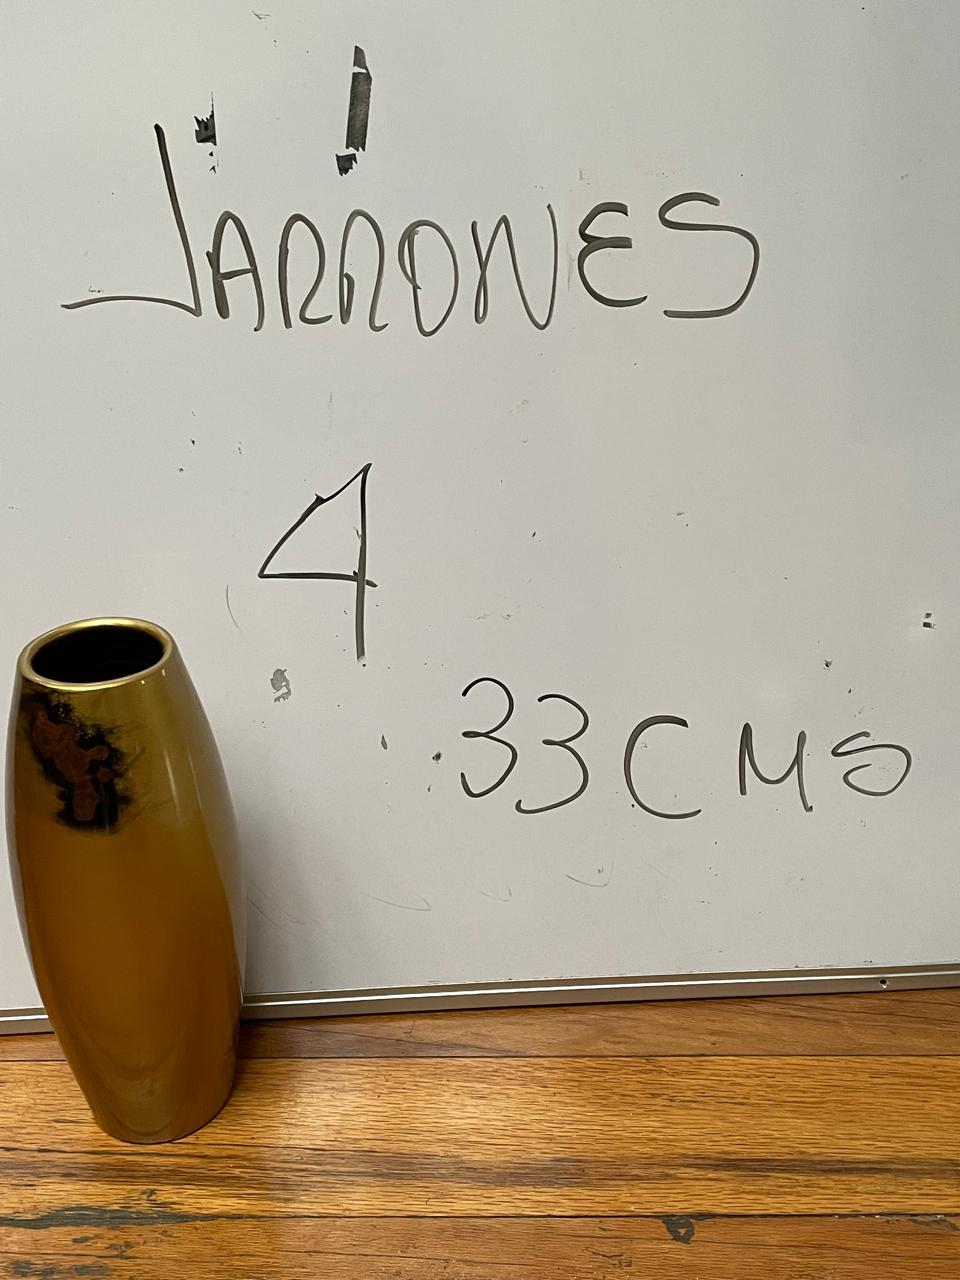 JARRONES
4
33 CMS